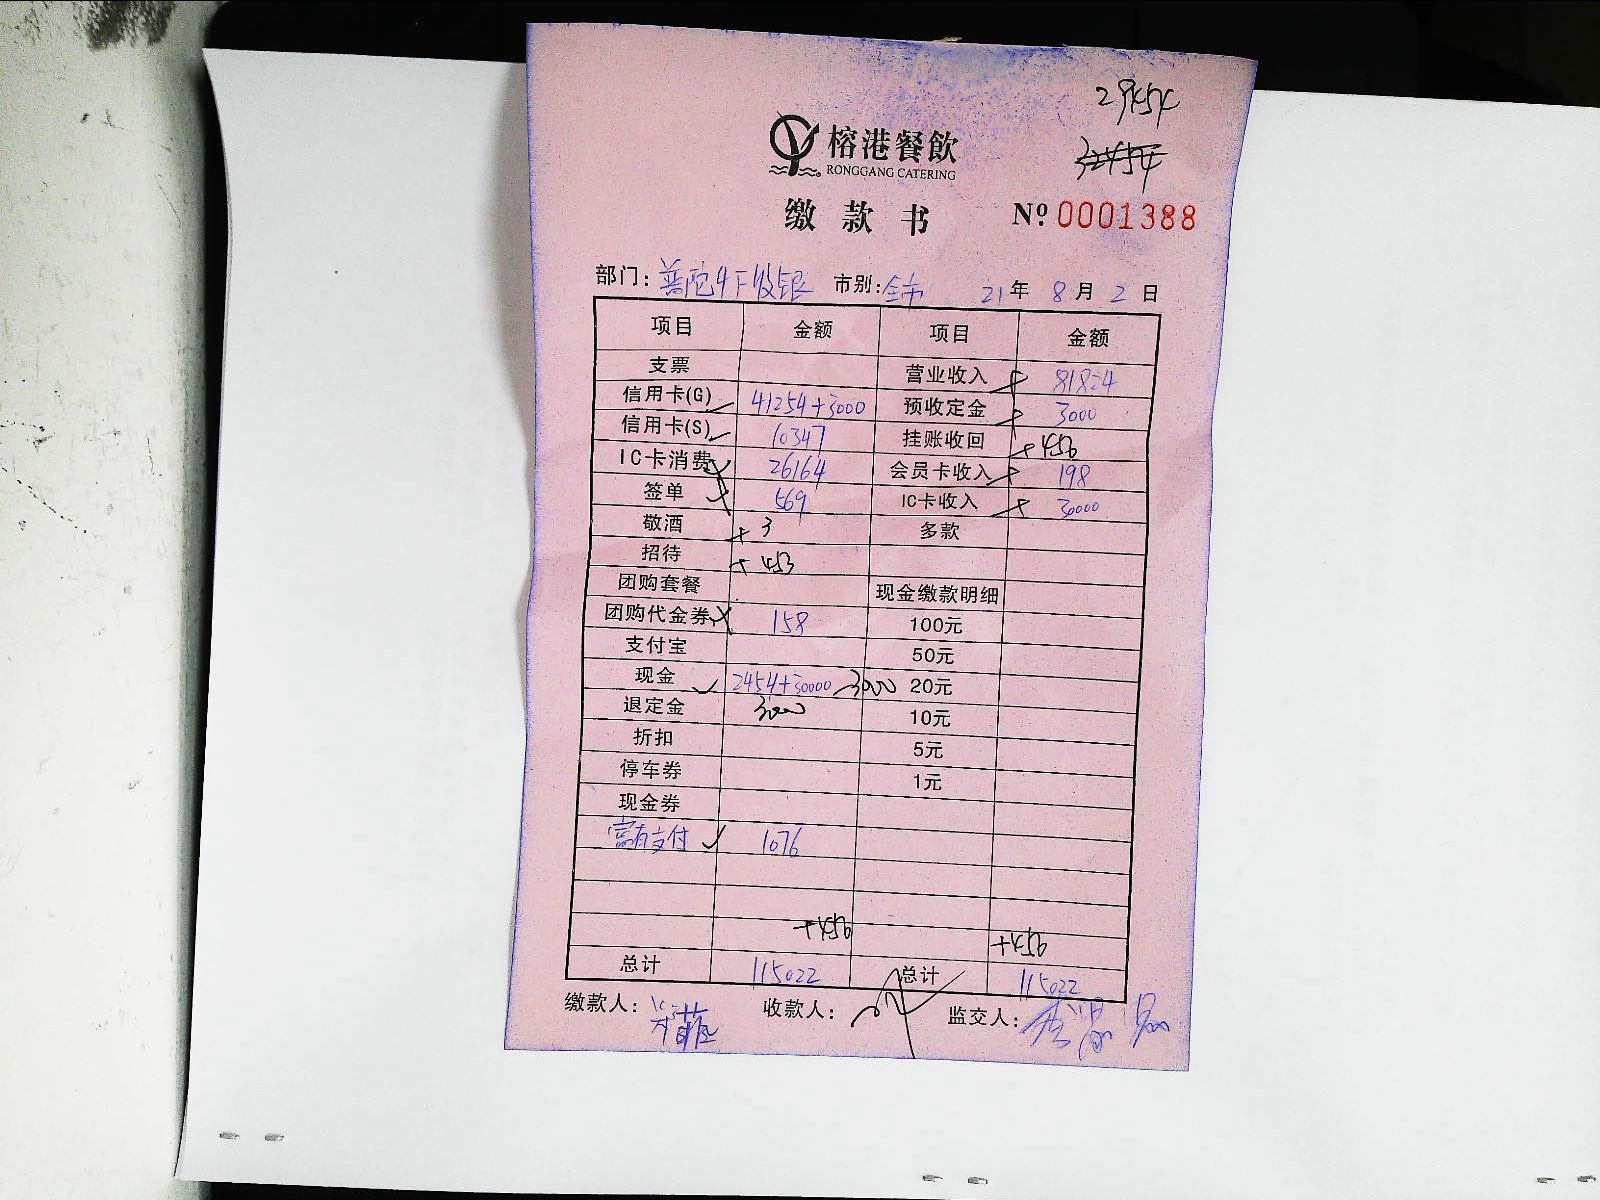 29454
32454
榕港餐飲
RONGGANG CATERING
缴款书 Nº 0001388
部门: 普陀4F收银 市别: 全市 21年 8月 2日
项目 金额 项目 金额
支票 营业收入 81824
信用卡(G) 41254+3000 预收定金 3000
信用卡(S) 10347 挂账收回 +456
IC卡消费 26164 会员卡收入 198
签单 569 IC卡收入 30000
敬酒 + 3 多款
招待 + 453
团购套餐 现金缴款明细
团购代金券 158 100元
支付宝 50元
现金 2454+30000 -3000 20元
退定金 3000 10元
折扣 5元
停车券 1元
现金券
富有支付 1076
+456 +456
总计 115022 总计 115022
缴款人: 收款人: 监交人: